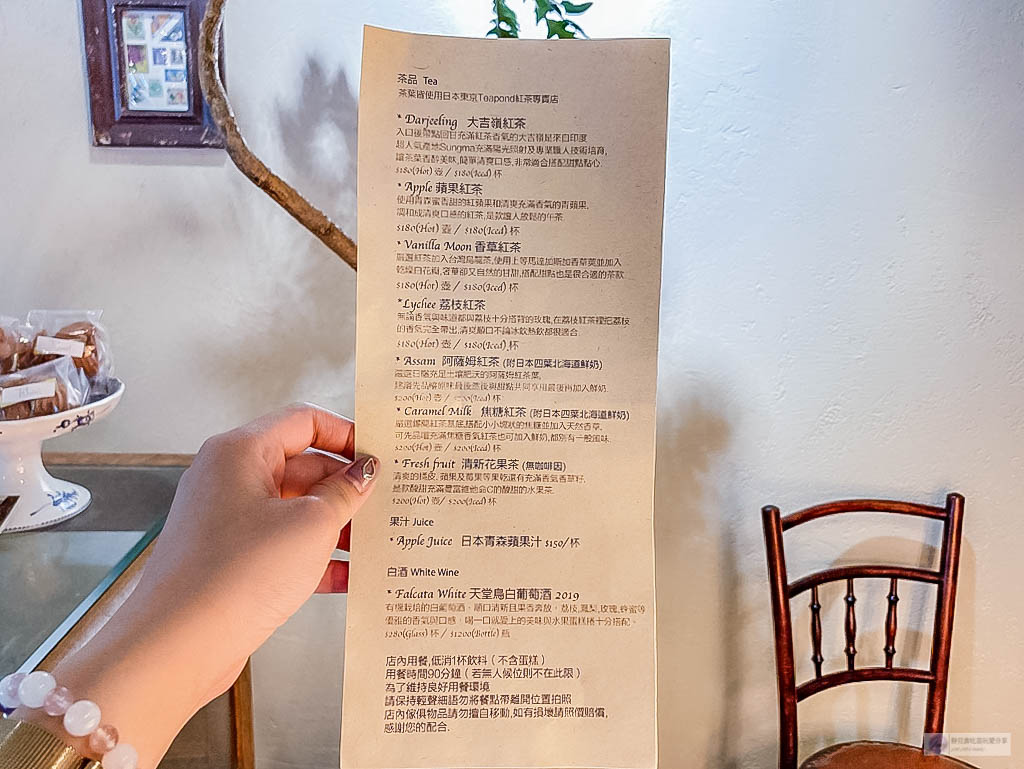 茶品 Tea
茶葉皆使用日本東京Teapond紅茶專賣店
* Darjeeling 大吉嶺紅茶
入口後帶點回甘充滿紅茶香氣的大吉嶺是來自印度
超人氣產地Sungma充滿陽光照射及專業職人技術培育,
讓茶葉香醇美味,簡單清爽口感,非常適合搭配甜點點心.
$180(Hot) 壺 / $180(Iced) 杯
* Apple 蘋果紅茶
使用青森蜜香甜的紅蘋果和清爽充滿香氣的青蘋果,
調和成清爽口感的紅茶,是款讓人放鬆的午茶
$180(Hot) 壺 / $180(Iced) 杯
* Vanilla Moon 香草紅茶
嚴選紅茶加入台灣烏龍茶,使用上等馬達加斯加香草莢並加入
乾燥白花瓣,奢華卻又自然的甘甜,搭配甜點也是很合適的茶款.
$180(Hot) 壺 / $180(Iced) 杯
*Lychee 荔枝紅茶
無論香氣與味道都與荔枝十分搭背的玫瑰,在荔枝紅茶裡把荔枝
的香氣完全帶出,清爽順口不論冰飲熱飲都很適合.
$180(Hot) 壺 / $180(Iced) 杯
* Assam 阿薩姆紅茶 (附日本四葉北海道鮮奶)
嚴選日陽充足土壤肥沃的阿薩姆紅茶葉,
建議先品嚐原味最後與甜點共同享用最後再加入鮮奶.
$200(Hot) 壺 / $200(Iced) 杯
* Caramel Milk 焦糖紅茶 (附日本四葉北海道鮮奶)
嚴選錫蘭紅茶基底,搭配小小塊狀的焦糖並加入天然香草,
可先品嚐充滿焦糖香氣紅茶也可加入鮮奶,都別有一般風味.
$200(Hot) 壺 / $200(Iced) 杯
* Fresh fruit 清新花果茶 (無咖啡因)
清爽的橘皮, 蘋果及莓果等果乾還有充滿香氣香草籽,
是款酸甜充滿豐富維他命C的酸甜的水果茶.
$200(Hot) 壺/ $200(Iced) 杯
果汁 Juice
* Apple Juice 日本青森蘋果汁 $150/杯
白酒 White Wine
* Falcata White 天堂鳥白葡萄酒 2019
有機栽培的白葡萄酒、順口清新且果香奔放。荔枝,鳳梨,玫瑰,蜂蜜等
優雅的香氣與口感。喝一口就愛上的美味與水果蛋糕捲十分搭配。
$280(Glass) 杯 / $1200(Bottle) 瓶
店內用餐,低消1杯飲料（不含蛋糕）
用餐時間90分鐘（若無人候位則不在此限）
為了維持良好用餐環境
請保持輕聲細語勿將餐點帶離開位置拍照
店內傢俱物品請勿擅自移動,如有損壞請照價賠償,
感謝您的配合.